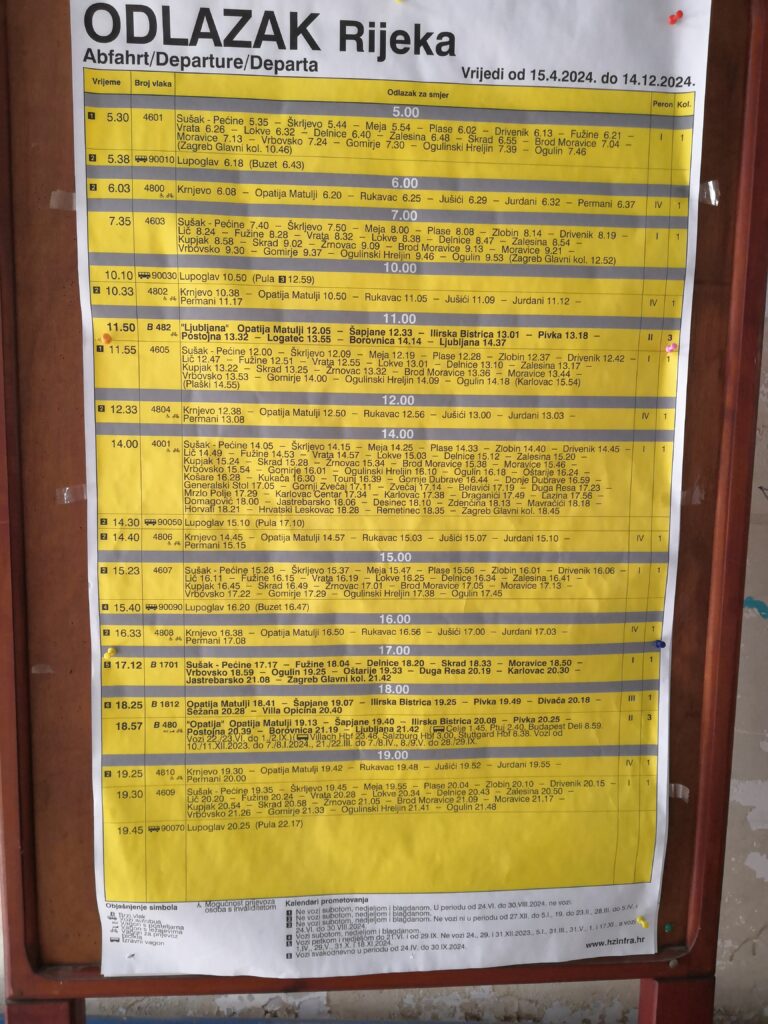 ODLAZAK Rijeka
Abfahrt/Departure/Departa
Vrijedi od 15.4.2024. do 14.12.2024.
Vrijeme Broj vlaka Odlazak za smjer Peron Kol.
5.00
1 5.30 4601 Sušak - Pećine 5.35 – Škrljevo 5.44 – Meja 5.54 – Plase 6.02 – Drivenik 6.13 – Fužine 6.21 – I 1
Vrata 6.26 – Lokve 6.32 – Delnice 6.40 – Zalesina 6.48 – Skrad 6.55 – Brod Moravice 7.04 –
Moravice 7.13 – Vrbovsko 7.24 – Gomirje 7.30 – Ogulinski Hreljin 7.39 – Ogulin 7.46
(Zagreb Glavni kol. 10.46)
2 5.38 90010 Lupoglav 6.18 (Buzet 6.43)
6.00
2 6.03 4800 Krnjevo 6.08 – Opatija Matulji 6.20 – Rukavac 6.25 – Jušići 6.29 – Jurdani 6.32 – Permani 6.37 IV 1
7.00
7.35 4603 Sušak - Pećine 7.40 – Škrljevo 7.50 – Meja 8.00 – Plase 8.08 – Zlobin 8.14 – Drivenik 8.19 – I 1
Lič 8.24 – Fužine 8.28 – Vrata 8.32 – Lokve 8.38 – Delnice 8.47 – Zalesina 8.54 –
Kupjak 8.58 – Skrad 9.02 – Zrnovac 9.09 – Brod Moravice 9.13 – Moravice 9.21 –
Vrbovsko 9.30 – Gomirje 9.37 – Ogulinski Hreljin 9.46 – Ogulin 9.53 (Zagreb Glavni kol. 12.52)
10.00
10.10 90030 Lupoglav 10.50 (Pula 3 12.59)
2 10.33 4802 Krnjevo 10.38 – Opatija Matulji 10.50 – Rukavac 11.05 – Jušići 11.09 – Jurdani 11.12 – IV 1
Permani 11.17
11.00
11.50 B 482 "Ljubljana" Opatija Matulji 12.05 – Šapjane 12.33 – Ilirska Bistrica 13.01 – Pivka 13.18 – II 3
Postojna 13.32 – Logatec 13.55 – Borovnica 14.14 – Ljubljana 14.37
1 11.55 4605 Sušak - Pećine 12.00 – Škrljevo 12.09 – Meja 12.19 – Plase 12.28 – Zlobin 12.37 – Drivenik 12.42 – I 1
Lič 12.47 – Fužine 12.51 – Vrata 12.55 – Lokve 13.01 – Delnice 13.10 – Zalesina 13.17 –
Kupjak 13.22 – Skrad 13.25 – Zrnovac 13.32 – Brod Moravice 13.36 – Moravice 13.44 –
Vrbovsko 13.53 – Gomirje 14.00 – Ogulinski Hreljin 14.09 – Ogulin 14.18 (Karlovac 15.54)
(Plaški 14.55)
12.00
2 12.33 4804 Krnjevo 12.38 – Opatija Matulji 12.50 – Rukavac 12.56 – Jušići 13.00 – Jurdani 13.03 – IV 1
Permani 13.08
14.00
14.00 4001 Sušak - Pećine 14.05 – Škrljevo 14.15 – Meja 14.25 – Plase 14.33 – Zlobin 14.40 – Drivenik 14.45 – I 1
Lič 14.49 – Fužine 14.53 – Vrata 14.57 – Lokve 15.03 – Delnice 15.12 – Zalesina 15.20 –
Kupjak 15.24 – Skrad 15.28 – Zrnovac 15.34 – Brod Moravice 15.38 – Moravice 15.46 –
Vrbovsko 15.54 – Gomirje 16.01 – Ogulinski Hreljin 16.10 – Ogulin 16.18 – Oštarije 16.24 –
Košare 16.28 – Kukača 16.30 – Tounj 16.39 – Gornje Dubrave 16.44 – Donje Dubrave 16.59 –
Generalski Stol 17.05 – Gornji Zvečaj 17.11 – Zvečaj 17.14 – Belavići 17.19 – Duga Resa 17.23 –
Mrzlo Polje 17.29 – Karlovac Centar 17.34 – Karlovac 17.38 – Draganići 17.49 – Lazina 17.56
Domagović 18.00 – Jastrebarsko 18.06 – Desinec 18.10 – Zdenčina 18.13 – Mavračići 18.18 –
Horvati 18.21 – Hrvatski Leskovac 18.28 – Remetinec 18.35 – Zagreb Glavni kol. 18.45
2 14.30 90050 Lupoglav 15.10 (Pula 17.10)
2 14.40 4806 Krnjevo 14.45 – Opatija Matulji 14.57 – Rukavac 15.03 – Jušići 15.07 – Jurdani 15.10 – IV 1
Permani 15.15
15.00
2 15.23 4607 Sušak - Pećine 15.28 – Škrljevo 15.37 – Meja 15.47 – Plase 15.56 – Zlobin 16.01 – Drivenik 16.06 – I 1
Lič 16.11 – Fužine 16.15 – Vrata 16.19 – Lokve 16.25 – Delnice 16.34 – Zalesina 16.41 –
Kupjak 16.45 – Skrad 16.49 – Zrnovac 17.01 – Brod Moravice 17.05 – Moravice 17.13 –
Vrbovsko 17.22 – Gomirje 17.29 – Ogulinski Hreljin 17.38 – Ogulin 17.45
4 15.40 90090 Lupoglav 16.20 (Buzet 16.47)
16.00
2 16.33 4808 Krnjevo 16.38 – Opatija Matulji 16.50 – Rukavac 16.56 – Jušići 17.00 – Jurdani 17.03 – IV 1
Permani 17.08
17.00
5 17.12 B 1701 Sušak - Pećine 17.17 – Fužine 18.04 – Delnice 18.20 – Skrad 18.33 – Moravice 18.50 – I 1
Vrbovsko 18.59 – Ogulin 19.25 – Oštarije 19.33 – Duga Resa 20.19 – Karlovac 20.30 –
Jastrebarsko 21.08 – Zagreb Glavni kol. 21.42
18.00
4 18.25 B 1812 Opatija Matulji 18.41 – Šapjane 19.07 – Ilirska Bistrica 19.25 – Pivka 19.49 – Divača 20.18 – III 1
Sežana 20.28 – Villa Opicina 20.40
18.57 B 480 "Opatija" Opatija Matulji 19.13 – Šapjane 19.40 – Ilirska Bistrica 20.08 – Pivka 20.25 – II 3
Postojna 20.39 – Borovnica 21.19 – Ljubljana 21.42 ( Celje 1.45, Ptuj 2.40, Budapest Deli 8.59.
Vozi 22./23.VI. do 1./2.IX.) ( Villach Hbf 23.48, Salzburg Hbf 3.00, Stuttgart Hbf 8.38. Vozi od
10./11.XII.2023. do 7./8.I.2024., 21./22.III. do 7./8.IV., 8./9.V. do 28./29.IX.
19.00
2 19.25 4810 Krnjevo 19.30 – Opatija Matulji 19.42 – Rukavac 19.48 – Jušići 19.52 – Jurdani 19.55 – IV 1
Permani 20.00
19.30 4609 Sušak - Pećine 19.35 – Škrljevo 19.45 – Meja 19.55 – Plase 20.04 – Zlobin 20.10 – Drivenik 20.15 – I 1
Lič 20.20 – Fužine 20.24 – Vrata 20.28 – Lokve 20.34 – Delnice 20.43 – Zalesina 20.50 –
Kupjak 20.54 – Skrad 20.58 – Zrnovac 21.05 – Brod Moravice 21.09 – Moravice 21.17 –
Vrbovsko 21.26 – Gomirje 21.33 – Ogulinski Hreljin 21.41 – Ogulin 21.48
19.45 90070 Lupoglav 20.25 (Pula 22.17)
Objašnjenje simbola
Brzi vlak
Vozi autobus
Vagon s posteljama
Vagon s ležajevima
Vagon za prijevoz
Izravni vagon
Mogućnost prijevoza
osoba s invaliditetom
Kalendari prometovanja
1 Ne vozi subotom, nedjeljom i blagdanom. U periodu od 24.VI. do 30.VIII.2024. ne vozi.
2 Ne vozi subotom, nedjeljom i blagdanom.
Ne vozi subotom, nedjeljom i blagdanom. Ne vozi ni u periodu od 27.XII. do 5.I., 19. do 23.II., 28.III. do 5.IV. i
24.VI. do 30.VIII.2024.
Vozi subotom, nedjeljom i blagdanom.
Vozi svakodnevno u periodu od 24.IV. do 30.IX.2024.
www.hzinfra.hr